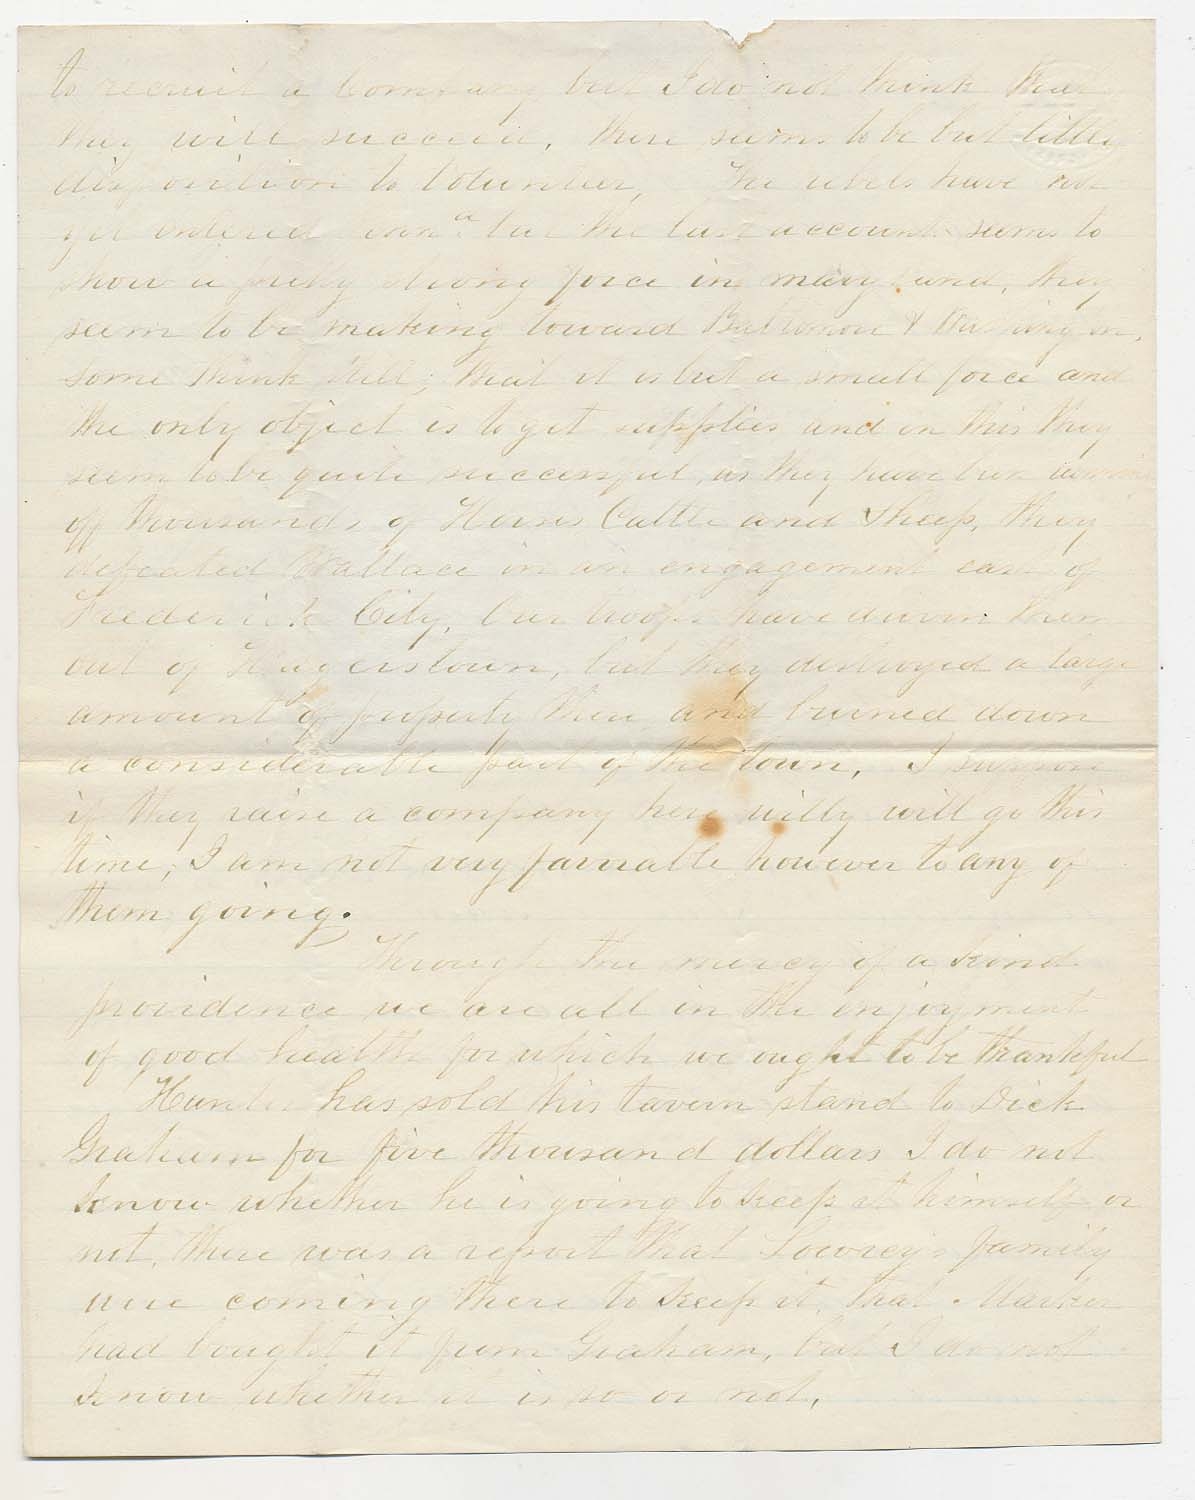 to recruit a Company but I do not think that
they will succeed, there seems to be but little
disposition to volunteer, The rebels have not
yet entered Penna but the last account seems to
show a pretty strong force in maryland, they
seem to be making toward Baltimore & Washington,
some think still, that it is but a small force and
the only object is to get supplies and in this they
seem to be quite successful, as they have been
off thousands of Horses, Cattle and Sheep, they
defeated Wallace in an engagement east of
Frederick City, Our troops have driven them
out of Hagerstown, but they destroyed a large
amount of property there and burned down
a considerable part of the town, I suppose
if they raise a company here willy will go this
time, I am not very favorable however to any of
them going.
Through the mercy of a kind
providence we are all in the enjoyment
of good health for which we ought to be thankful
Hunter has sold his tavern stand to Dick
Graham for five thousand dollars I do not
know whether he is going to keep it himself or
not, there was a report that Lowrey's family
were coming there to keep it, that Marker
had bought it from Graham, but I do not
know whether it is so or not,